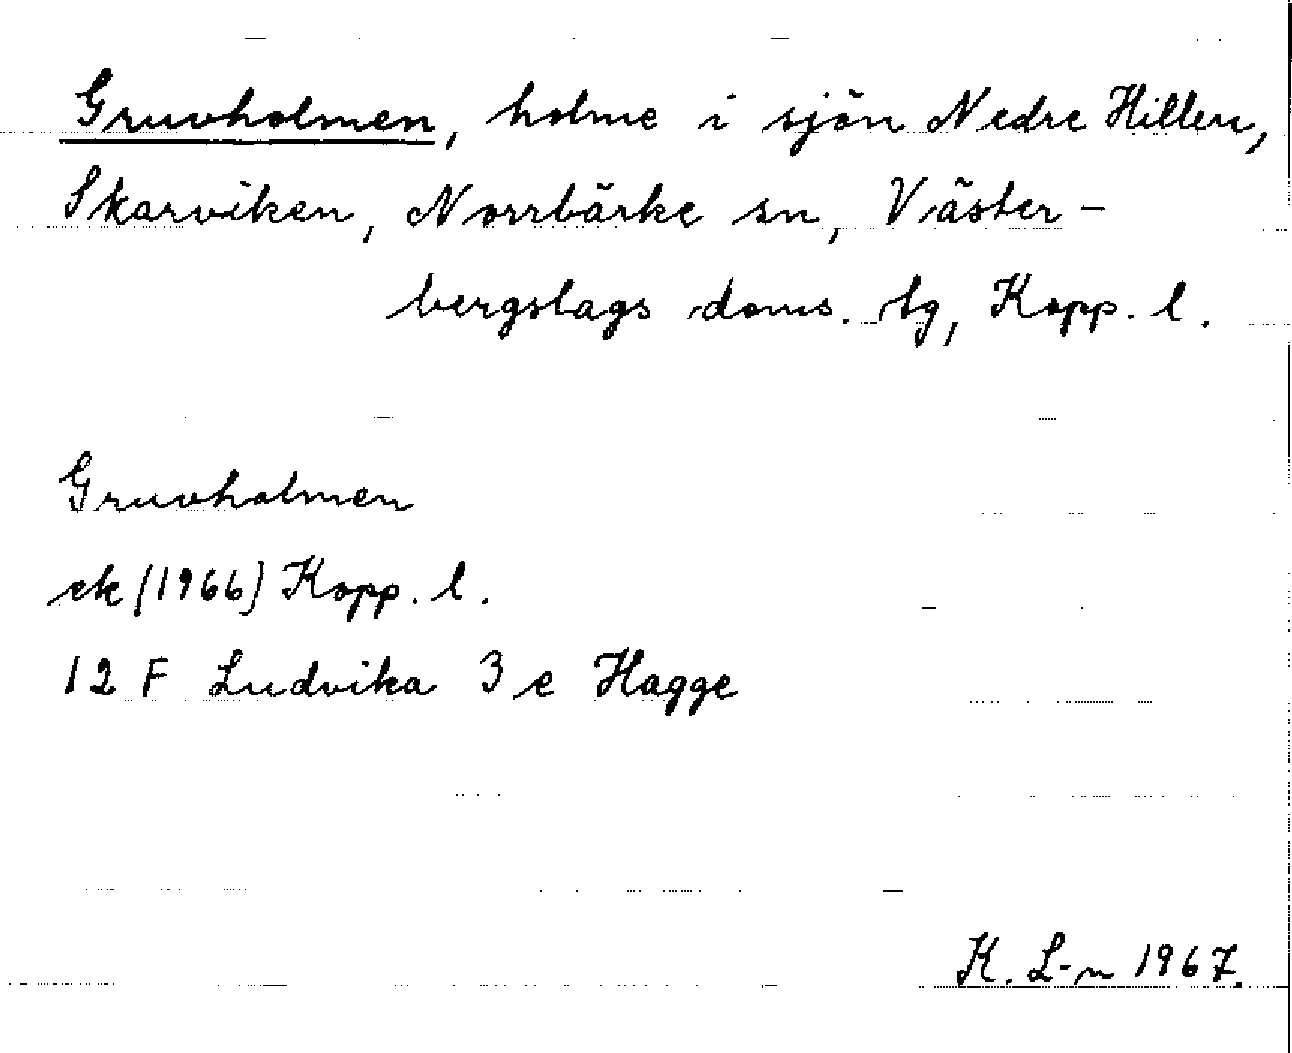 Gruvholmen, holme i sjön Nedre Hillen,
Skarviken, Norrbärke sn, Väster-
bergslags doms. tg, Kopp. l.
Gruvholmen
ek (1966) Kopp. l.
12 F Ludvika 3 e Hagge
K. L-n 1967.